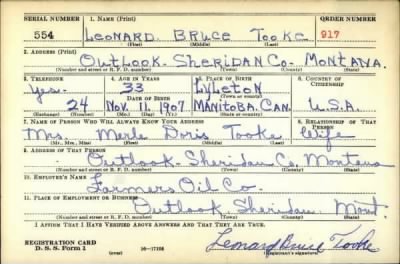 SERIAL NUMBER 1. NAME (Print) ORDER NUMBER
554 Leonard Bruce Tooke 917
(First) (Middle) (Last)
2. ADDRESS (Print)
Outlook. Sheridan Co. Montana.
(Number and street or R. F. D. number) (Town) (County) (State)
3. TELEPHONE 4. AGE IN YEARS 5. PLACE OF BIRTH 6. COUNTRY OF CITIZENSHIP
Yes. 33 Lyleton
DATE OF BIRTH
24 Nov. 11, 1907 Manitoba. Can. U.S.A.
(Exchange) (Number) (Mo.) (Day) (Yr.) (State or country)
7. NAME OF PERSON WHO WILL ALWAYS KNOW YOUR ADDRESS 8. RELATIONSHIP OF THAT PERSON
Mrs. Merle Doris Tooke Wife
(Mr., Mrs., Miss) (First) (Middle) (Last)
9. ADDRESS OF THAT PERSON
Outlook. Sheridan Co. Montana
(Number and street or R. F. D. number) (Town) (County) (State)
10. EMPLOYER'S NAME
Farmers Oil Co.
11. PLACE OF EMPLOYMENT OR BUSINESS
Outlook. Sheridan. Mont
(Number and street or R. F. D. number) (Town) (County) (State)
I AFFIRM THAT I HAVE VERIFIED ABOVE ANSWERS AND THAT THEY ARE TRUE.
REGISTRATION CARD
D. S. S. Form 1 (over) 16—17105 Leonard Bruce Tooke
(Registrant's signature)